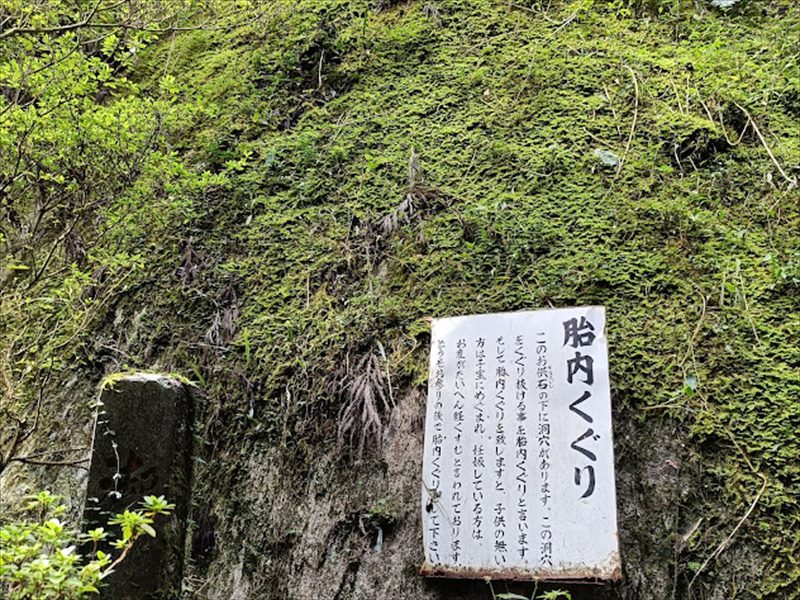 胎内くぐり
このお供石の下に洞穴があります、この洞穴
をくぐり抜ける事を胎内くぐりと言います。
そして胎内くぐりを致しますと、子供の無い
方は子宝にめぐまれ、妊娠している方は、
お産がたいへん軽くすむと言われております。
どうぞお参りの後で胎内くぐりをして下さい。